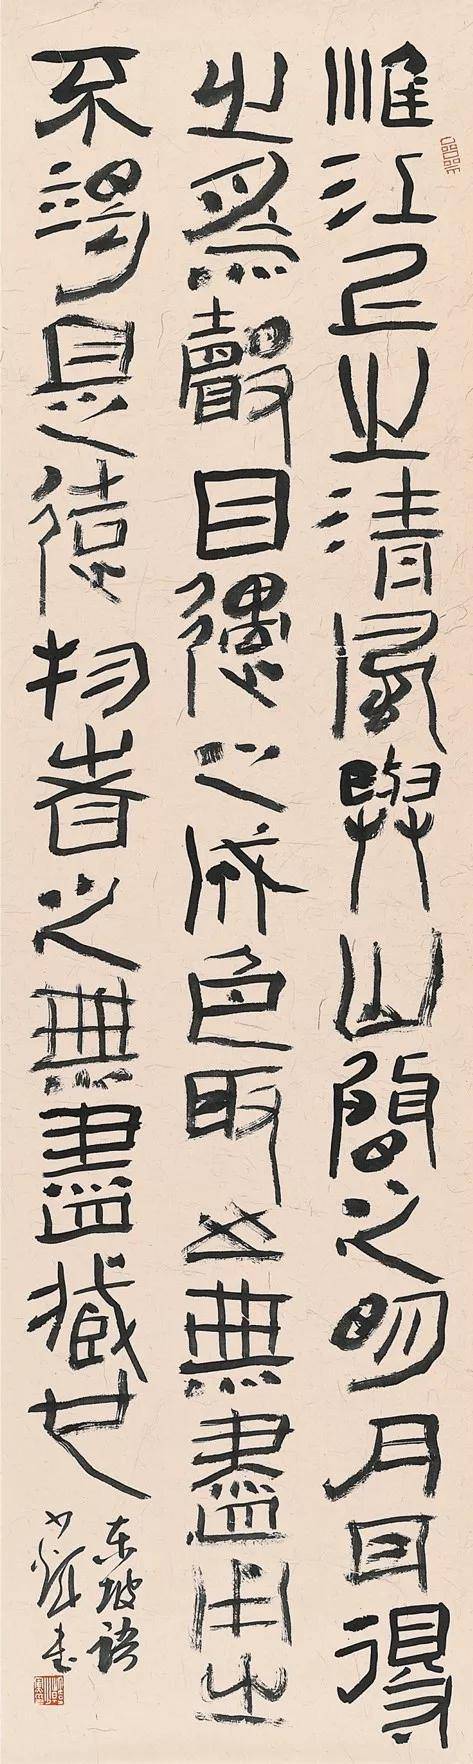 惟江上之清風與山間之明月耳得
之為聲目遇之成色取之無盡用之
不竭是造物者之無盡藏也
东坡语
书